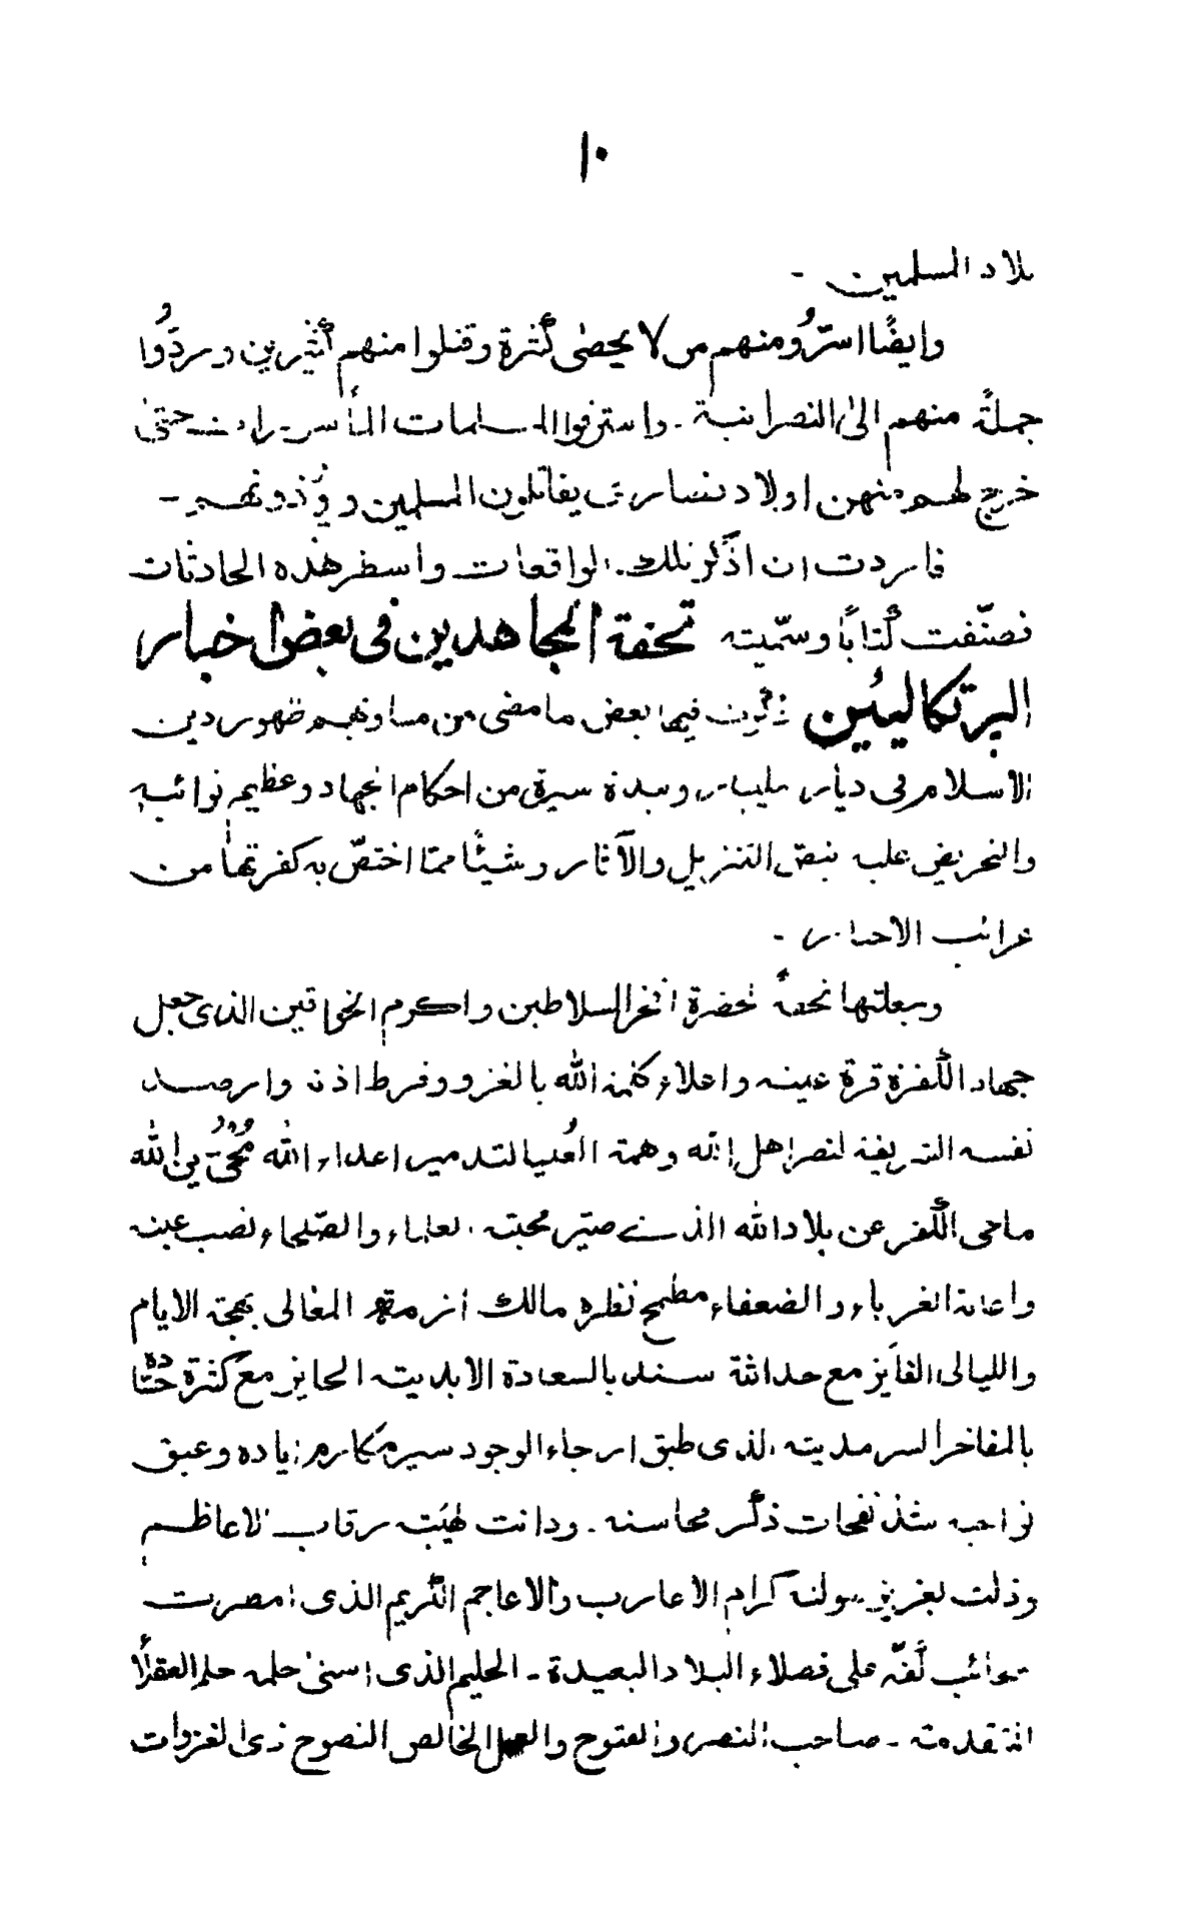 ١٠
بلاد المسلمين -
وايضًا اسرّوُ منهم من لا يحصٰى كثرة وقتلوا منهم كثيرين وردّوُا
جملةً منهم الىٰ النصرانية - واسترقوا المسلمات المأسورات حتىٰ
خرج لهم منهن اولاد نصارىٰ يقاتلون المسلمين ويؤُذونهم -
فاردت ان اذكر تلك الواقعات واسطر هذه الحادثات
فصنّفت كتابًا وسمّيته تحفة المجاهدين فى بعض اخبار
البرتكاليئين ذكرت فيها بعض ما مضى من مساويهم ظهور دين
الاسلام فى ديار مليبار ونبذة يسيرة من احكام الجهاد وعظيم ثوائبه
والتحريض عليه بنصّ التنزيل والآثار وشيئًا ممّا اختصّ به كفرتها من
غرائب الاخبار -
وجعلتها تحفةً لحضرة افخر السلاطين واكرم الخواقين الذى جعل
جهاد الكفرة قرة عينه واعلاء كلمة الله بالغزو وفرط اذنه وارصد
نفسه الشريفة لنصر اهل الله وهمة العُليا لتدمير اعداء الله مُحْىُ دين الله
ماحى الكفر عن بلاد الله الذى صيّر محبته العلماء والصّلحاء نصب عينه
واعانة الغرباء والضعفاء مطمح نظره مالك ازمة المعالى بهجة الايام
والليالى الفايز مع حداثة سنه بالسعادة الابديته الحايز مع كثرة
بالمفاخر السرمديته الذى طبق ارجاء الوجود سير مكارم اياده وعبق
نواحيه شذ نفحات ذكر محاسنه - ودانت لهيبته رقاب الاعاظم
وذلت بعزيز صولته كرام الاعارب والاعاجم الكريم الذى امطرت
سحائب كفّه على فضلاء البلاد البعيدة - الحليم الذى حلمه حلم العقلاء
المتقدمة - صاحب النصر والفتوح والعمل الخالص النصوح ذى الغزوات